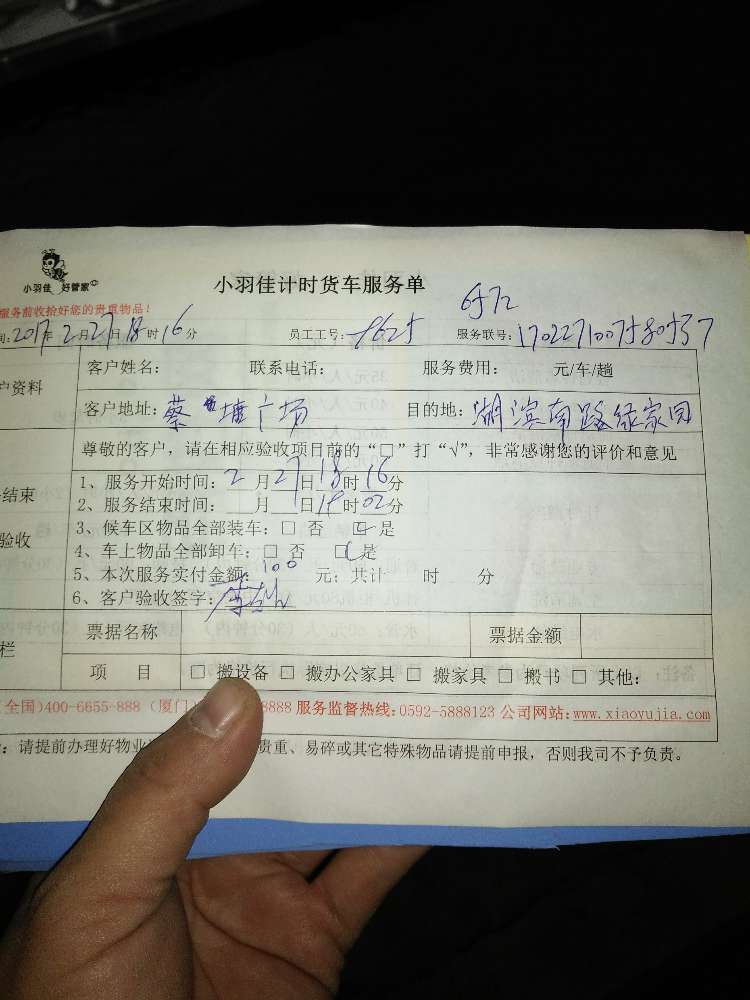 小羽佳 好管家
小羽佳计时货车服务单
6572
服务前收拾好您的贵重物品!
间: 2017年 2月 27日 18时 16分 员工工号: 8625 服务联号:
户资料 客户姓名: 联系电话: 服务费用: 元/车/趟
客户地址: 蔡塘广场 目的地: 湖滨南路绿家园
尊敬的客户,请在相应验收项目前的“□”打“√”,非常感谢您的评价和意见
结束 1、服务开始时间: 2月 27日 18时 16分
2、服务结束时间: 月 日 19时 02分
验收 3、候车区物品全部装车: □ 否 □ 是
4、车上物品全部卸车: □ 否 □ 是
5、本次服务实付金额: 100 元; 共计 时 分
6、客户验收签字:
栏 票据名称 票据金额
项 目 □ 搬设备 □ 搬办公家具 □ 搬家具 □ 搬书 □ 其他:
(全国)400-6655-888 (厦门) 8888 服务监督热线: 0592-5888123 公司网站: www.xiaoyujia.com
: 请提前办理好物业 贵重、易碎或其它特殊物品请提前申报,否则我司不予负责。